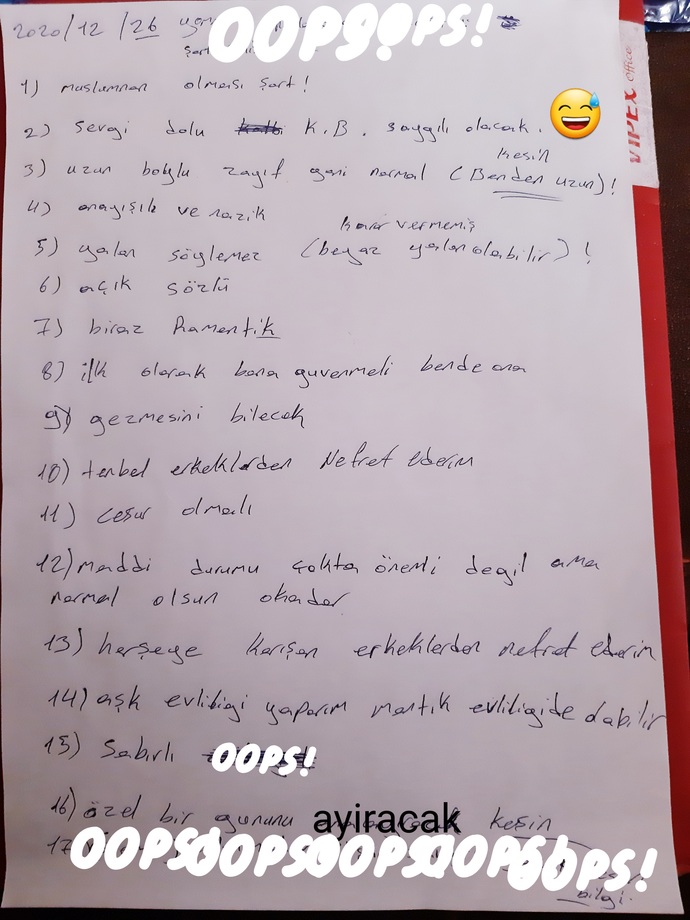 2020/12/26
OOPS! OOPS!
1) muslumnan olması şart!
2) sevgi dolu K.B. saygılı olacak.
3) uzun boylu zayıf yani normal (Benden uzun)! kesin
4) anayışılı ve nazik
5) yalan söylemez (beyaz yalan olabilir)! karar vermemiş
6) açık sözlü
7) biraz Ramentik
8) ilk olarak bana guvenmeli bende ona
9) gezmesini bilecek
10) tenbel erkeklerden Nefret ederim
11) cesur olmalı
12) maddi durumu çokta önemli degil ama
normal olsun okadar
13) herşeye karışan erkeklerden nefret ederim
14) aşk evliligi yaparım mantık evliligide olabilir
15) Sabırlı OOPS!
16) özel bir gununu ayiracak kesin
17)
OOPS! OOPS! OOPS! OOPS! OOPS!
bilgi.
VIPEX Office